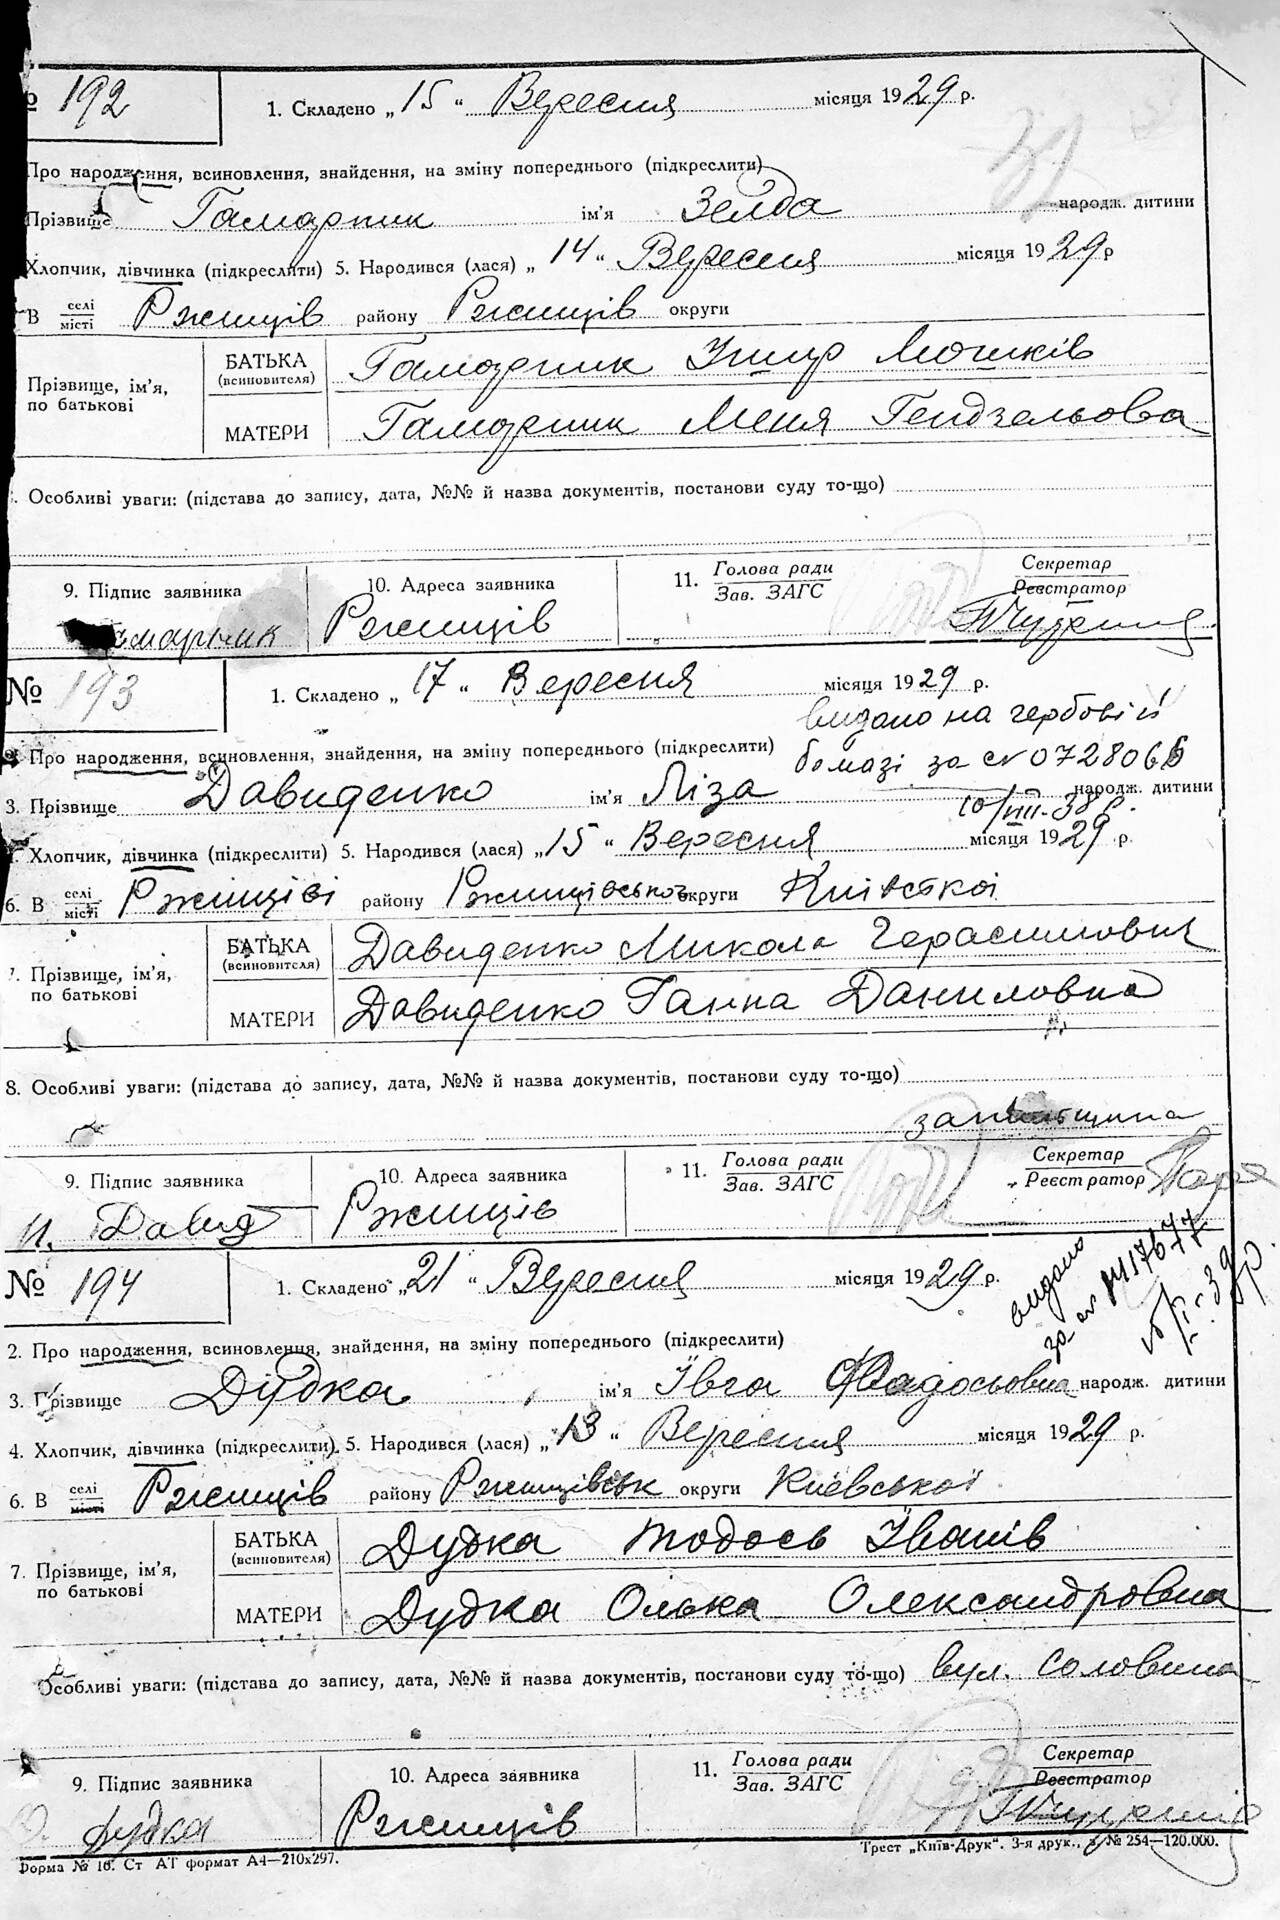 № 192 1. Складено „ 15 “ Вересня місяця 1929 р.
Про народження, всиновлення, знайдення, на зміну попереднього (підкреслити)
Прізвище Гамарник ім'я Зелда народж. дитини
Хлопчик, дівчинка (підкреслити) 5. Народився (лася) „ 14 “ Вересня місяця 1929 р
В селі місті Ржищів району Ржищів округи
Прізвище, ім'я, по батькові
БАТЬКА (всиновителя) Гамарник Ушир Мошків
МАТЕРИ Гамарник Меня Гендзельова
Особливі уваги: (підстава до запису, дата, №№ й назва документів, постанови суду то-що)
9. Підпис заявника 10. Адреса заявника 11. Голова ради Зав. ЗАГС Секретар Реєстратор
амарник Ржищів
№ 193 1. Складено „ 17 “ Вересня місяця 1929 р.
видано на гербовій
Про народження, всиновлення, знайдення, на зміну попереднього (підкреслити)
бомазі за № 072806
3. Прізвище Давиденко ім'я Ліза народж. дитини
10/VIII-38 р.
Хлопчик, дівчинка (підкреслити) 5. Народився (лася) „ 15 “ Вересня місяця 1929 р.
6. В селі місті Ржищіві району Ржищівсько округи Київської
7. Прізвище, ім'я, по батькові
БАТЬКА (всиновителя) Давиденко Микола Герасимович
МАТЕРИ Давиденко Ганна Даниловна
8. Особливі уваги: (підстава до запису, дата, №№ й назва документів, постанови суду то-що)
9. Підпис заявника 10. Адреса заявника 11. Голова ради Зав. ЗАГС Секретар Реєстратор
Давид Ржищів
№ 194 1. Складено „ 21 “ Вересня місяця 1929 р.
видано
за № 1417677
2. Про народження, всиновлення, знайдення, на зміну попереднього (підкреслити)
3. Прізвище Дудка ім'я Івга Фадосьовна народж. дитини
4. Хлопчик, дівчинка (підкреслити) 5. Народився (лася) „ 13 “ Вересня місяця 1929 р.
6. В селі місті Ржищів району Ржищівськ округи Київської
7. Прізвище, ім'я, по батькові
БАТЬКА (всиновителя) Дудка Тодось Іванів
МАТЕРИ Дудка Олька Олександровна
Особливі уваги: (підстава до запису, дата, №№ й назва документів, постанови суду то-що) вул. Соловина
9. Підпис заявника 10. Адреса заявника 11. Голова ради Зав. ЗАГС Секретар Реєстратор
Дудка Ржищів
Форма № 1б. Ст АТ формат А4—210x297. Трест „Київ-Друк“. 3-я друк., з. № 254—120.000.